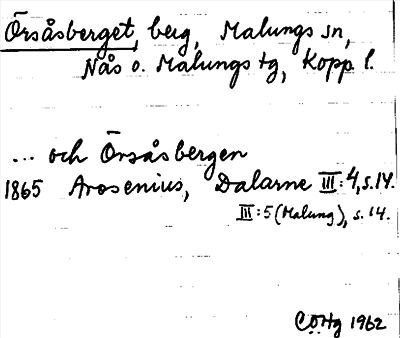 Örsåsberget, berg, Malungs sn,
Nås o. Malungs tg, Kopp. l.
... och Örsåsbergen
1865 Arosenius, Dalarne III:4, s.14.
III:5 (Malung), s. 14.
1962